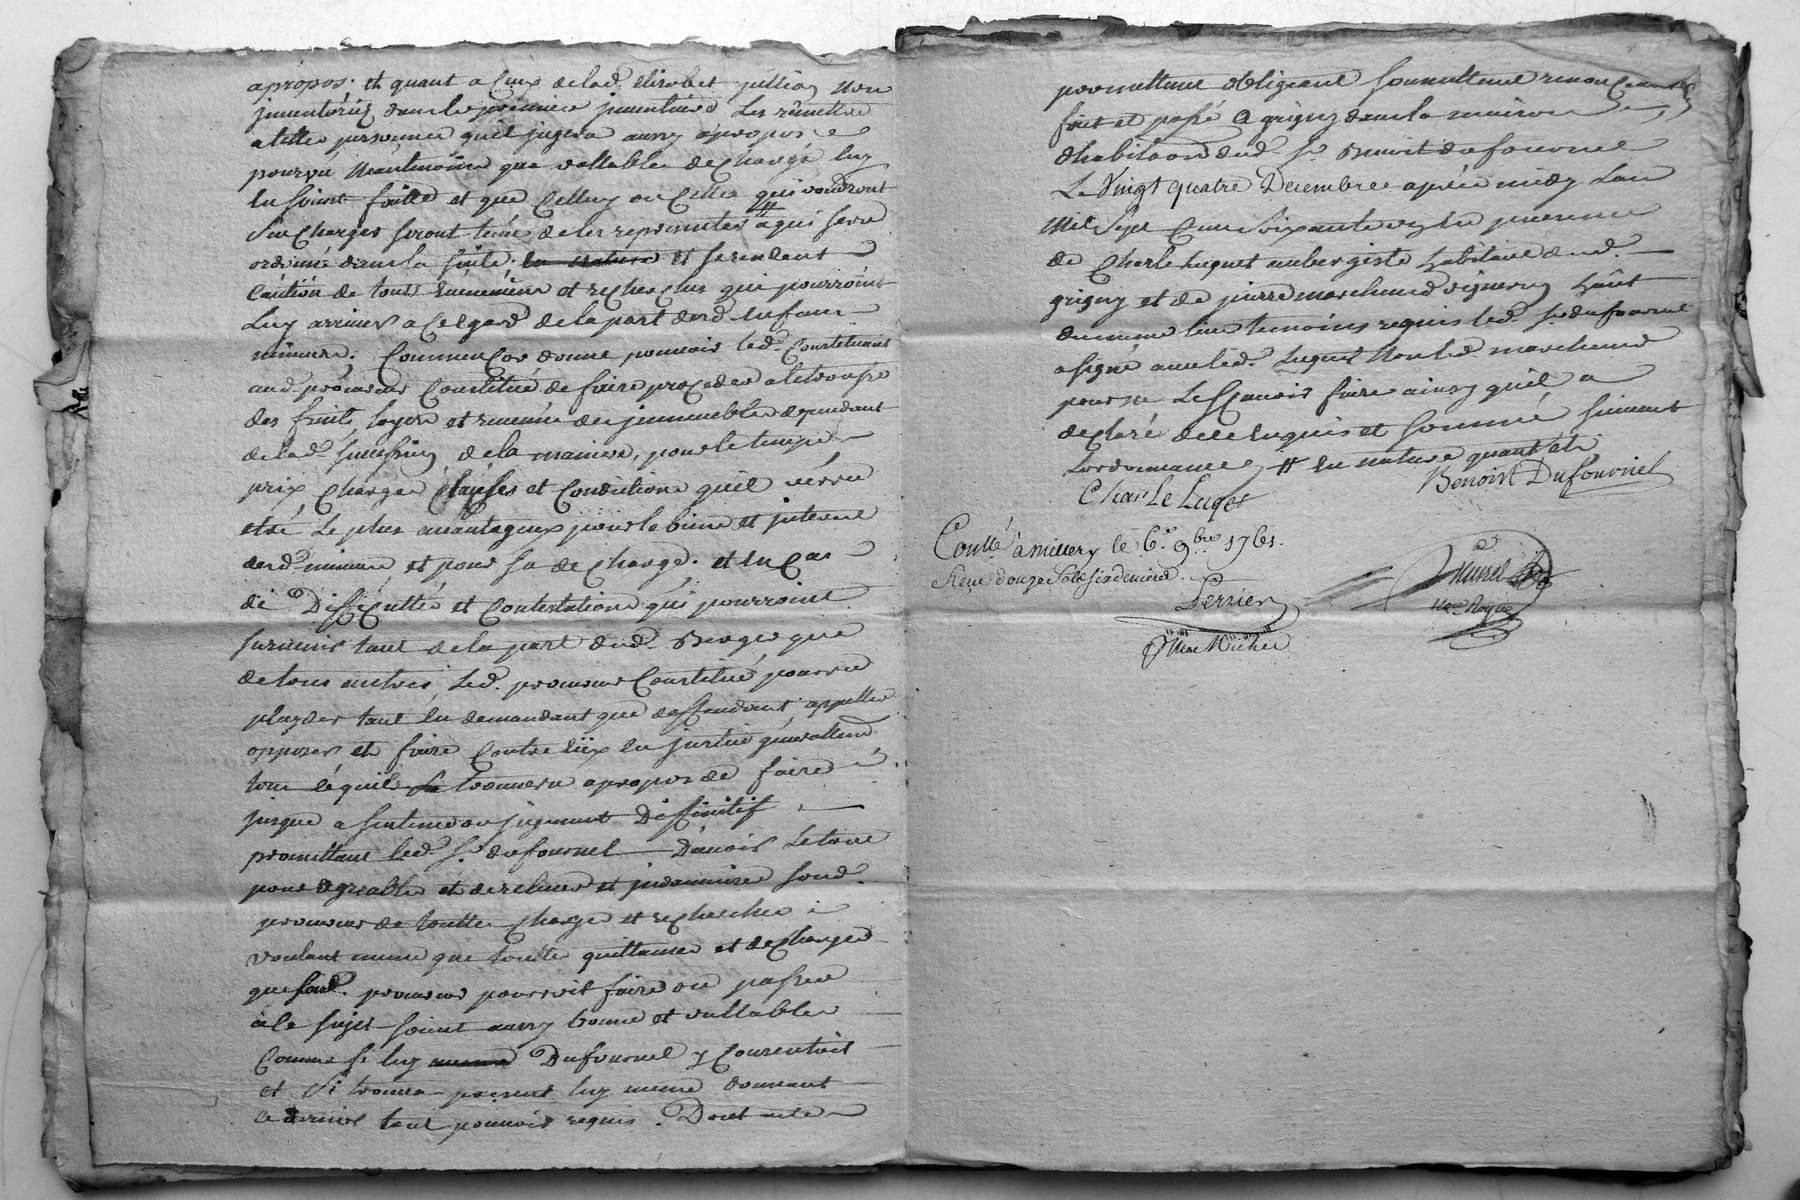 apropos; et quant a Ceux de lad. elizabet jullien Non
jnventóriéz dans le premier jnventaire Les remettre
a telle personnes quil jugera aussy apropos
pourvu Neantmoins que vallable decharge luy
En soient faitte et que Celluy ou Celles qui voudront
Sen Charger seront tenus de les representer # a qui sera
ordonné dans la suite. en nature et se rendent
Caution de tous Evenemens et recherches qui pourroint
Luy arriver a Cet egard de la part desd. Enfans
mineurs; Comme Encor donne pouvoir led. Constituant
aud. procureur Constitué de faire proceder a letrousse
des fruits, loyers et revenus des jmmeubles dependant
de lad. de la maniere, pour le temps
prix Charges Clauses et Conditions quil verra
etre Le plus avantageux pour le bien et jnterest
desd. mineurs et pour sa decharge. et En Cas
de Difficultés et Contestations qui pourroint
survenir tant de la part dud. Berger que
de tous autres, Led. procureur Constitué pourra
playder tant En demandant que deffendant appeller
opposer et faire Contre Eux En justice generallement
tout Ce quil trouvera apropos de faire
jusque a sentence ou jugement Diffinitif
promettant led. Sr. dufournel Davoir Le tout
pour agreable et de relever et jndamniser sond.
procureur de toutte Charge et recherches
voulant meme que toutte quittances et decharges
que sond. procureur pourroit faire ou passer
a Ce sujet soient aussy bonne et vallables
Comme si luy meme Dufournel y Consentoit
et Si trouva present luy meme donnant
Ce dernier tout pouvoir requis. Dont acte
promettant obligeant soumettant renonceant &c
fait et passé a grigny dans la maison
dhabitaon dud. Sr. Benoist dufournel
Le Vingt quatre Decembre après midy Lan
Mil Sept Cent Soixante En la presence
de Charle Luquet aubergiste habitant aud.
grigny et de pierre marchand vigneron habt
du meme lieu temoins requis led. Sr. dufournel
a signé avec led. Luquet Non led. marchand
pour ne Le sçavoir faire ainsy quil a
declaré de ce Enquis et sommé suivant
Lordonnance # En nature quant et
Benoist Dufournel
Charle Luqet
Conllé à millery le 6.e 9bre 1761.
Reçu douze sols six deniers.
Perrier